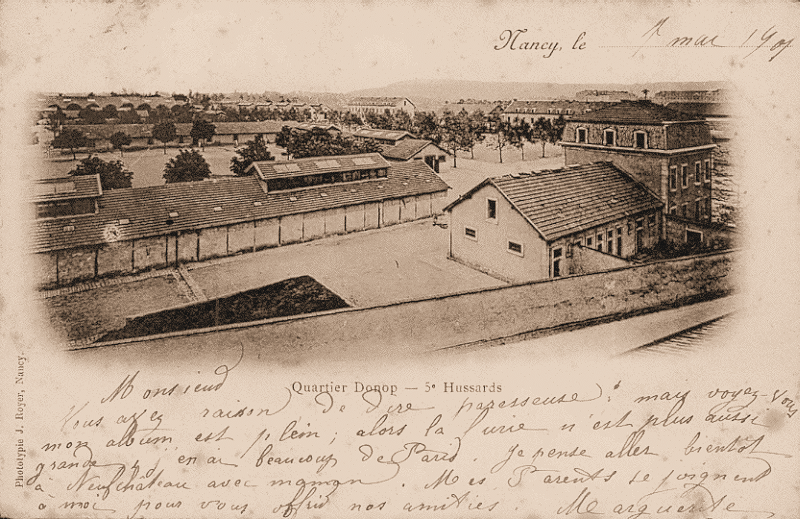 Nancy, le 1er mai 1901
Quartier Donop — 5e Hussards
Phototypie J. Royer, Nancy.
Monsieur
Vous avez raison de dire paresseuse : mais voyez-vous
mon album est plein ; alors la furie n'est plus aussi
grande, j'en ai beaucoup de Paris je pense aller bientôt
à Neufchateau avec maman. Mes Parents se joignent
à moi pour vous offrir nos amitiés. Marguerite